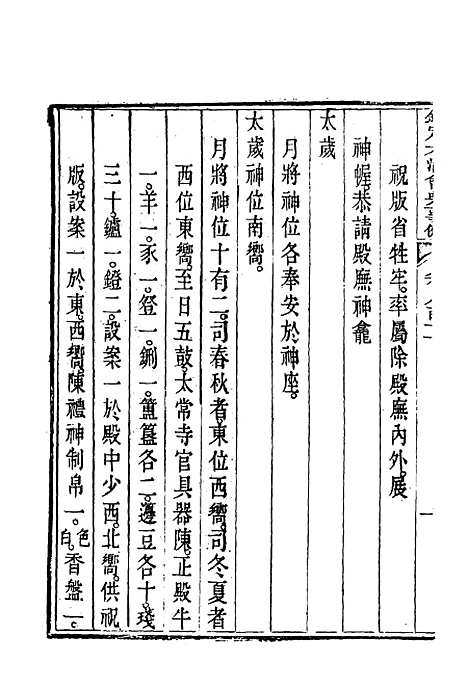 祝版省牲牢。率屬除殿廡內外。展
神幄。恭請殿廡神龕
太歲
月將神位各奉安於神座。
太歲神位南嚮。
月將神位十有二。司春秋者。東位西嚮。司冬夏者
西位東嚮。至日五鼓。太常寺官具器陳。正殿牛
一。羊一。豕一。登一。鉶一。簠簋各二。籩豆各十。琖
三十。鑪一。鐙二。設案一於殿中少西。北嚮。供祝
版。設案一於東。西嚮。陳禮神制帛一。色白。香盤一。